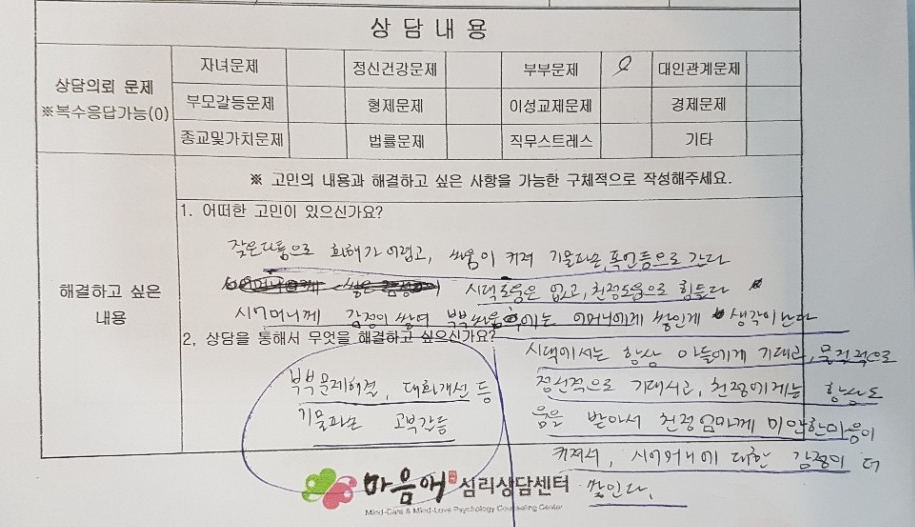 상담내용
상담의뢰 문제
※복수응답가능(0)
자녀문제 정신건강문제 부부문제 O 대인관계문제
부모갈등문제 형제문제 이성교제문제 경제문제
종교및가치문제 법률문제 직무스트레스 기타
해결하고 싶은
내용
※ 고민의 내용과 해결하고 싶은 사항을 가능한 구체적으로 작성해주세요.
1. 어떠한 고민이 있으신가요?
잦은다툼으로 화해가 어렵고, 싸움이 커져 기물파손, 폭언등으로 간다
시댁도움은 없고, 친정도움으로 힘들다
시어머니께 감정이 쌓여 부부싸움후에는 어머니에게 쌓인게 생각이 난다
2. 상담을 통해서 무엇을 해결하고 싶으신가요?
부부문제해결, 대화개선 등
기물파손 고부갈등
시댁에서는 항상 아들에게 기대고, 물질적으로
정신적으로 기대시고, 친정에게는 항상도
움을 받아서 친정엄마께 미안한마음이
커져서, 시어머니에 대한 감정이 더
쌓인다.
마음애 심리상담센터
Mind-Care & Mind-Love Psychology Counseling Center